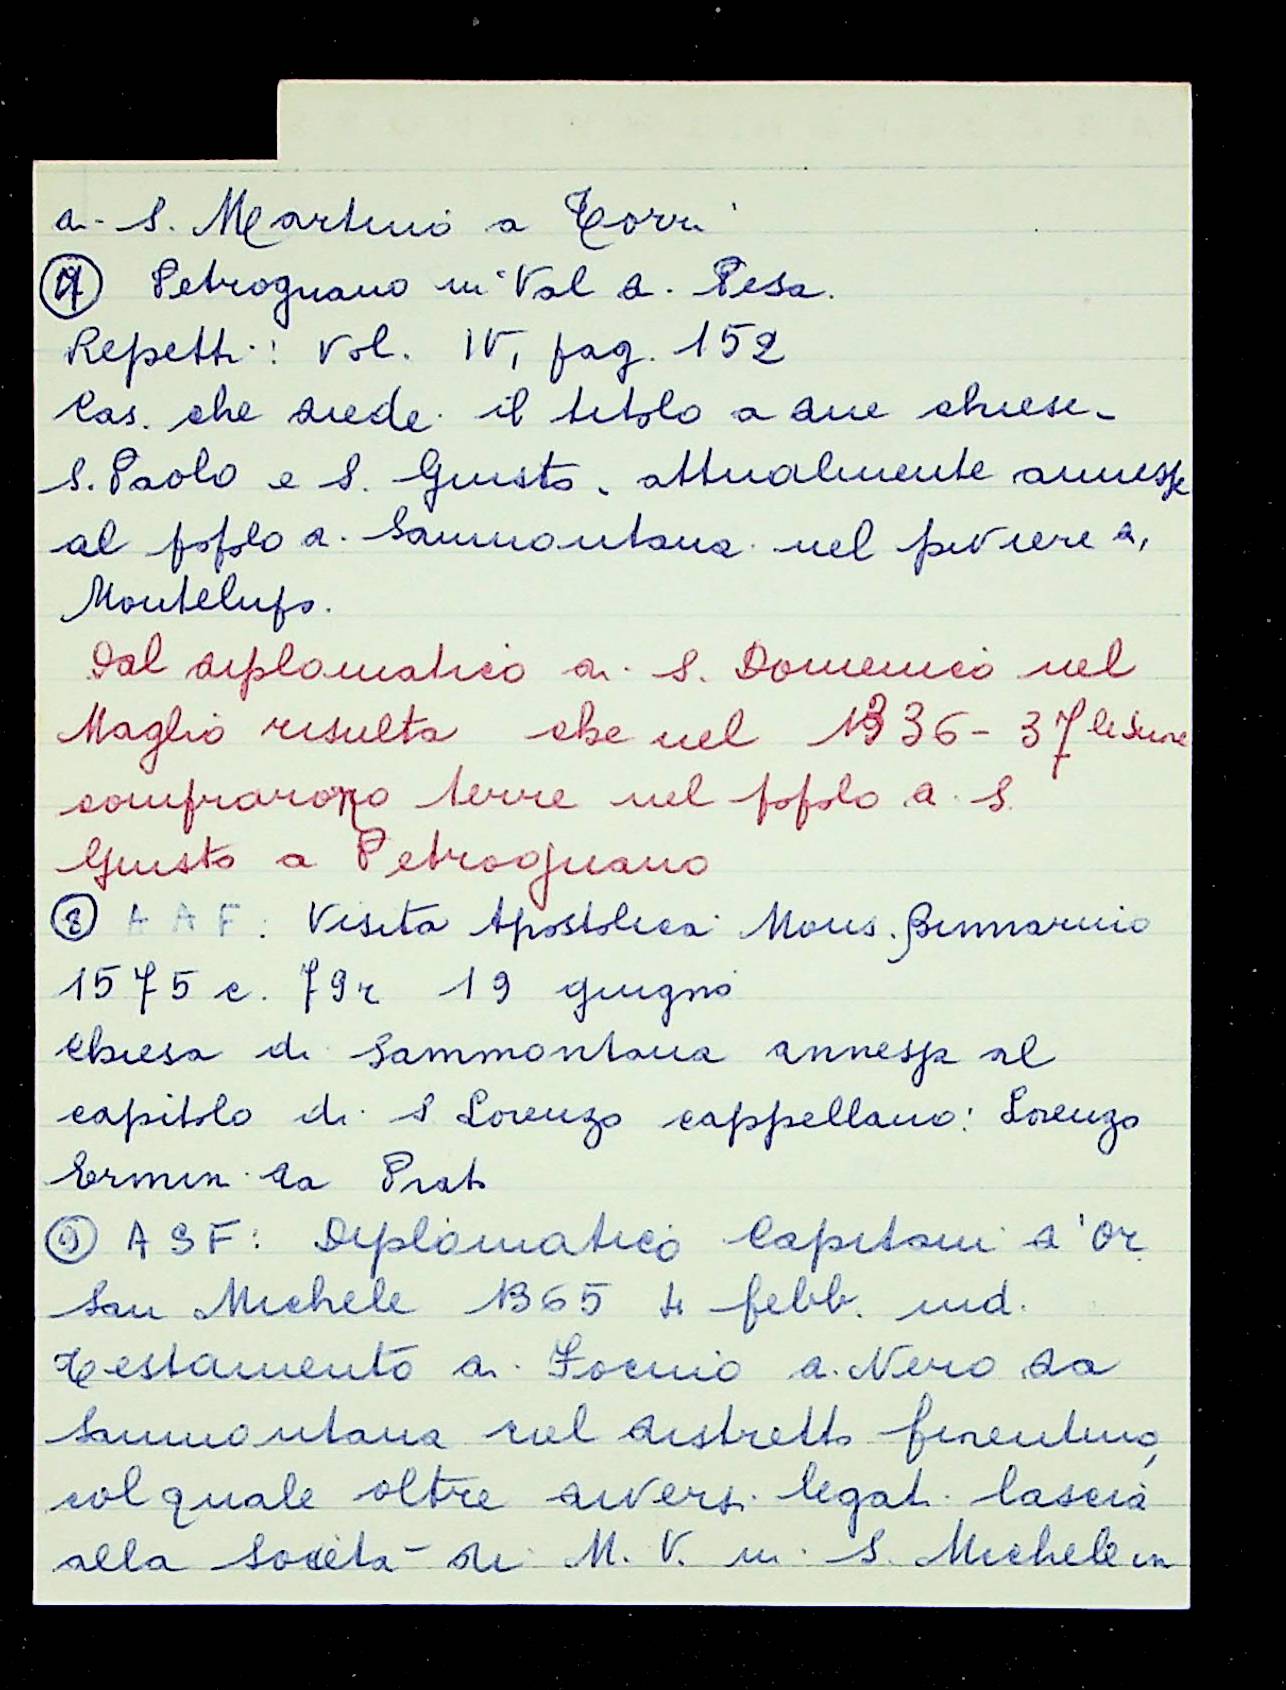 di S. Martino a Torri
7 Petrognano in Val di Pesa.
Repetti: Vol. IV, pag. 152
Cas. che diede il titolo a due chiese
S. Paolo e S. Giusto, attualmente annesse
al popolo di Sammontana nel piviere di
Montelupo.
Dal diplomatico di S. Domenico nel
Maglio risulta che nel 1336-37 le suore
comprarono terre nel popolo di S.
Giusto a Petrognano
8 AAF: Visita Apostolica Mons.
1575 c. 79r 19 giugno
Chiesa di Sammontana annessa al
capitolo di S Lorenzo cappellano: Lorenzo
Ermini da Prato
9 ASF: Diplomatico Capitani d'Or
San Michele 1365 4 febb. ind.
Testamento di di Nero da
Sammontana nel distretto fiorentino,
col quale oltre diversi legati lascia
alla Società di M. V. in S. Michele in